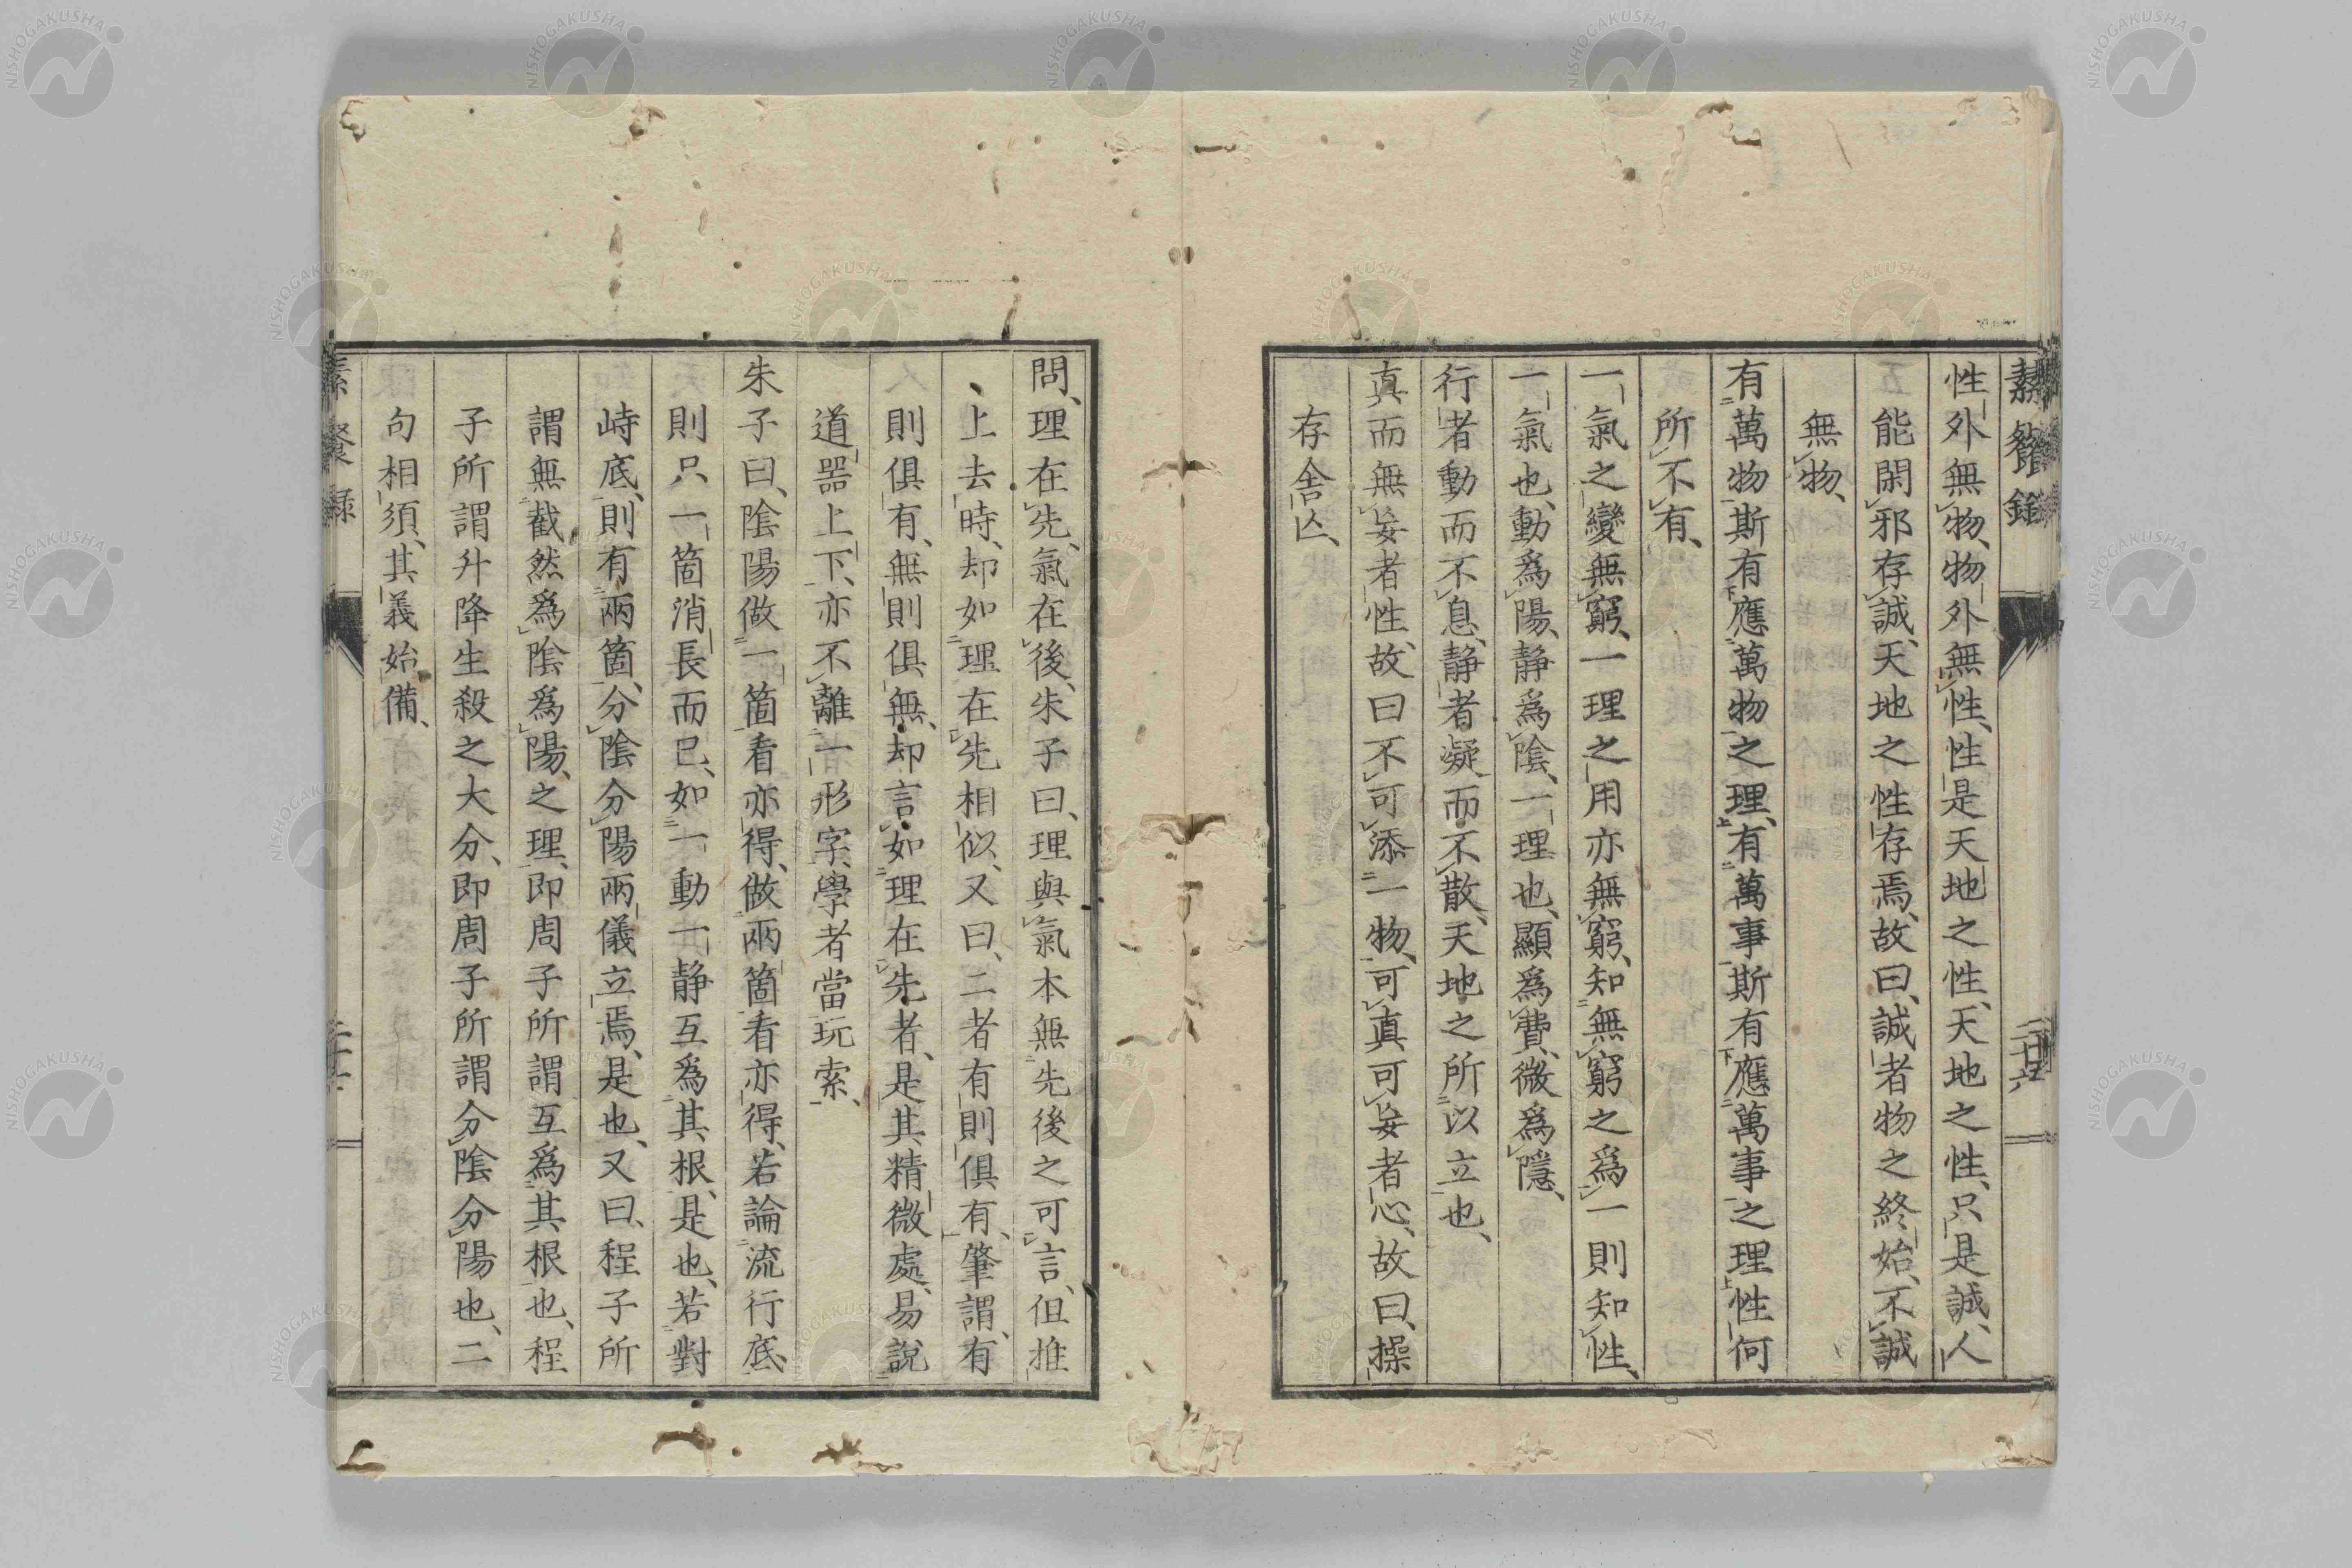 性外無物、物外無性、性是天地之性、天地之性、只是誠、人
能閑邪存誠、天地之性存焉、故曰、誠者物之終始、不誠
無物、
有萬物斯有應萬物之理、有萬事斯有應萬事之理性何
所不有、
一氣之變無窮、一理之用亦無窮、知無窮之爲一則知性、
一氣也、動爲陽、静爲陰、一理也、顯爲費、微爲隱、
行者動而不息、静者凝而不散、天地之所以立也、
真而無妄者性、故曰不可添一物、可真可妄者心、故曰、操
存舍亾、
問、理在先、氣在後、朱子曰、理與氣本無先後之可言、但推
上去時、却如理在先相似、又曰、二者有則俱有、肇謂、有
則俱有、無則俱無、却言如理在先者、是其精微處、易說
道噐上下、亦不離一形字、學者當玩索、
朱子曰、陰陽做一箇看亦得、做兩箇看亦得、若論流行底、
則只一箇消長而已、如一動一静互爲其根、是也、若對
峙底、則有兩箇、分陰分陽兩儀立焉、是也、又曰、程子所
謂無截然爲陰爲陽、之理、即周子所謂互爲其根也、程
子所謂升降生殺之大分、即周子所謂分陰分陽也、二
句相須、其義始備、